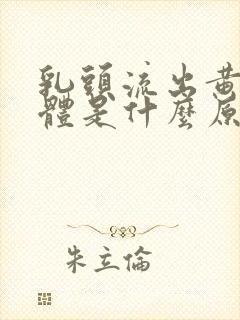 乳頭流出黃
體是什麼原
朱立倫